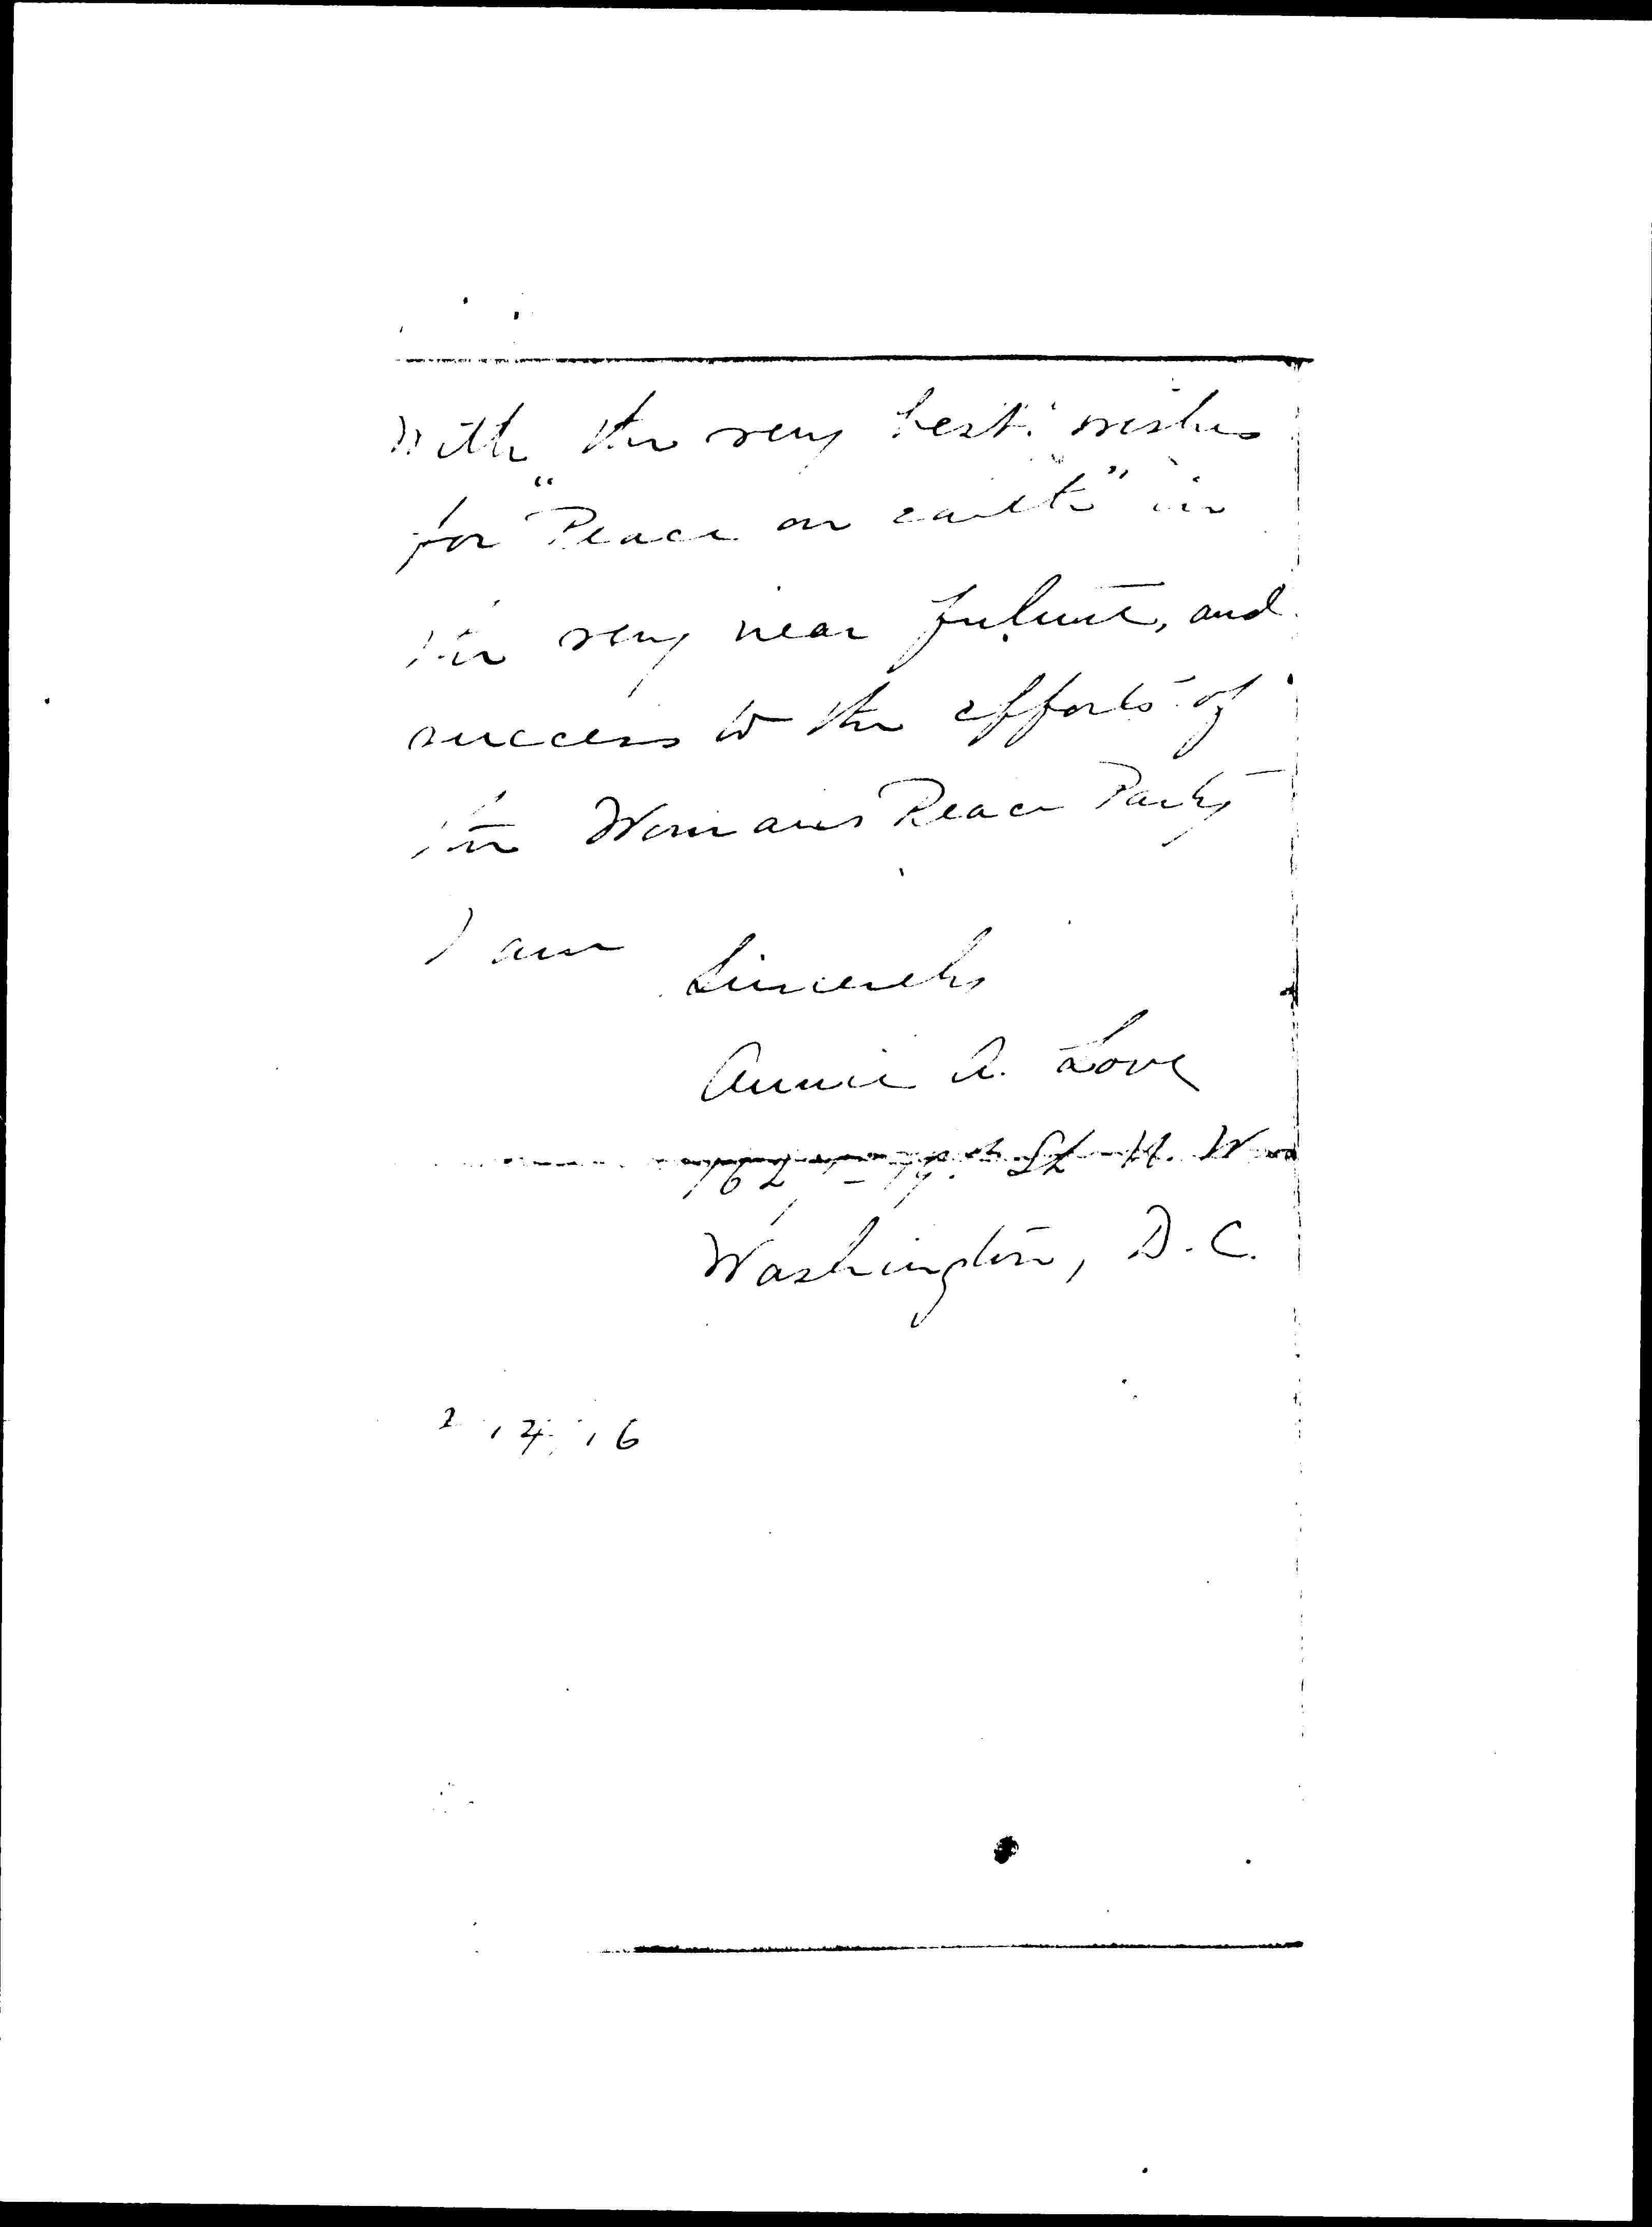 With the very best wishes
for "Peace on earth" in
the very near future, and
success to the efforts of
the Woman's Peace Party
I am
Sincerely
Annie A. Love
St. N. W.
Washington, D.C.
2 14 16